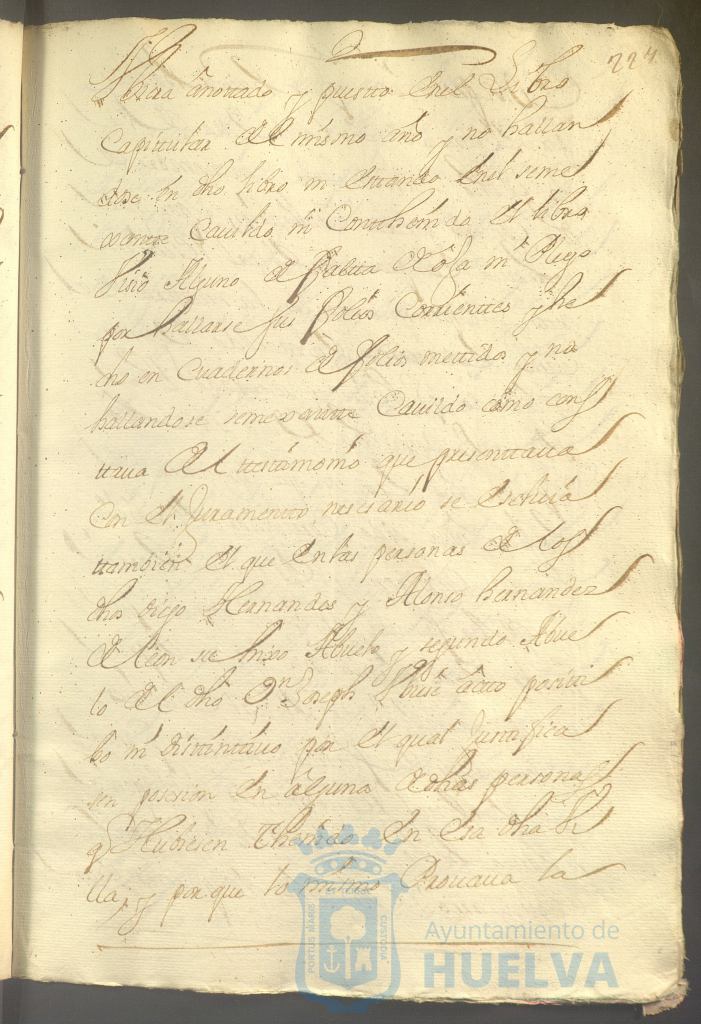 224
anottado y puestto Enel Libro
Capitular del mismo año y no hallan
dose En dho libro ni Estando Enel seme
xantte Cavildo ni Contthenido El libro
Alguno de falta de ni Pliego
por hallarse sus folios Corrienttes y he
cho en Cuadernos de folios mettidos y no
hallandose semexantte Cavildo como cons
ttava del testimonio que presenttava
Con el Juramentto nesesario se
ttambien El que En las personas de los
dhos Diego Hernandes y Alonso Hernandez
de Leon se hizo Abuelo y segundo Abue
lo del dho Dn Joseph actto positi
bo ni distinttivo por El qual Justifica
sen posesion En alguna de dhas personas
q Hubiesen thenido En esa dha Vi
lla, y por que lo mismo Provava la
PORTUS MARIS
CUSTODIA
Ayuntamiento de
HUELVA